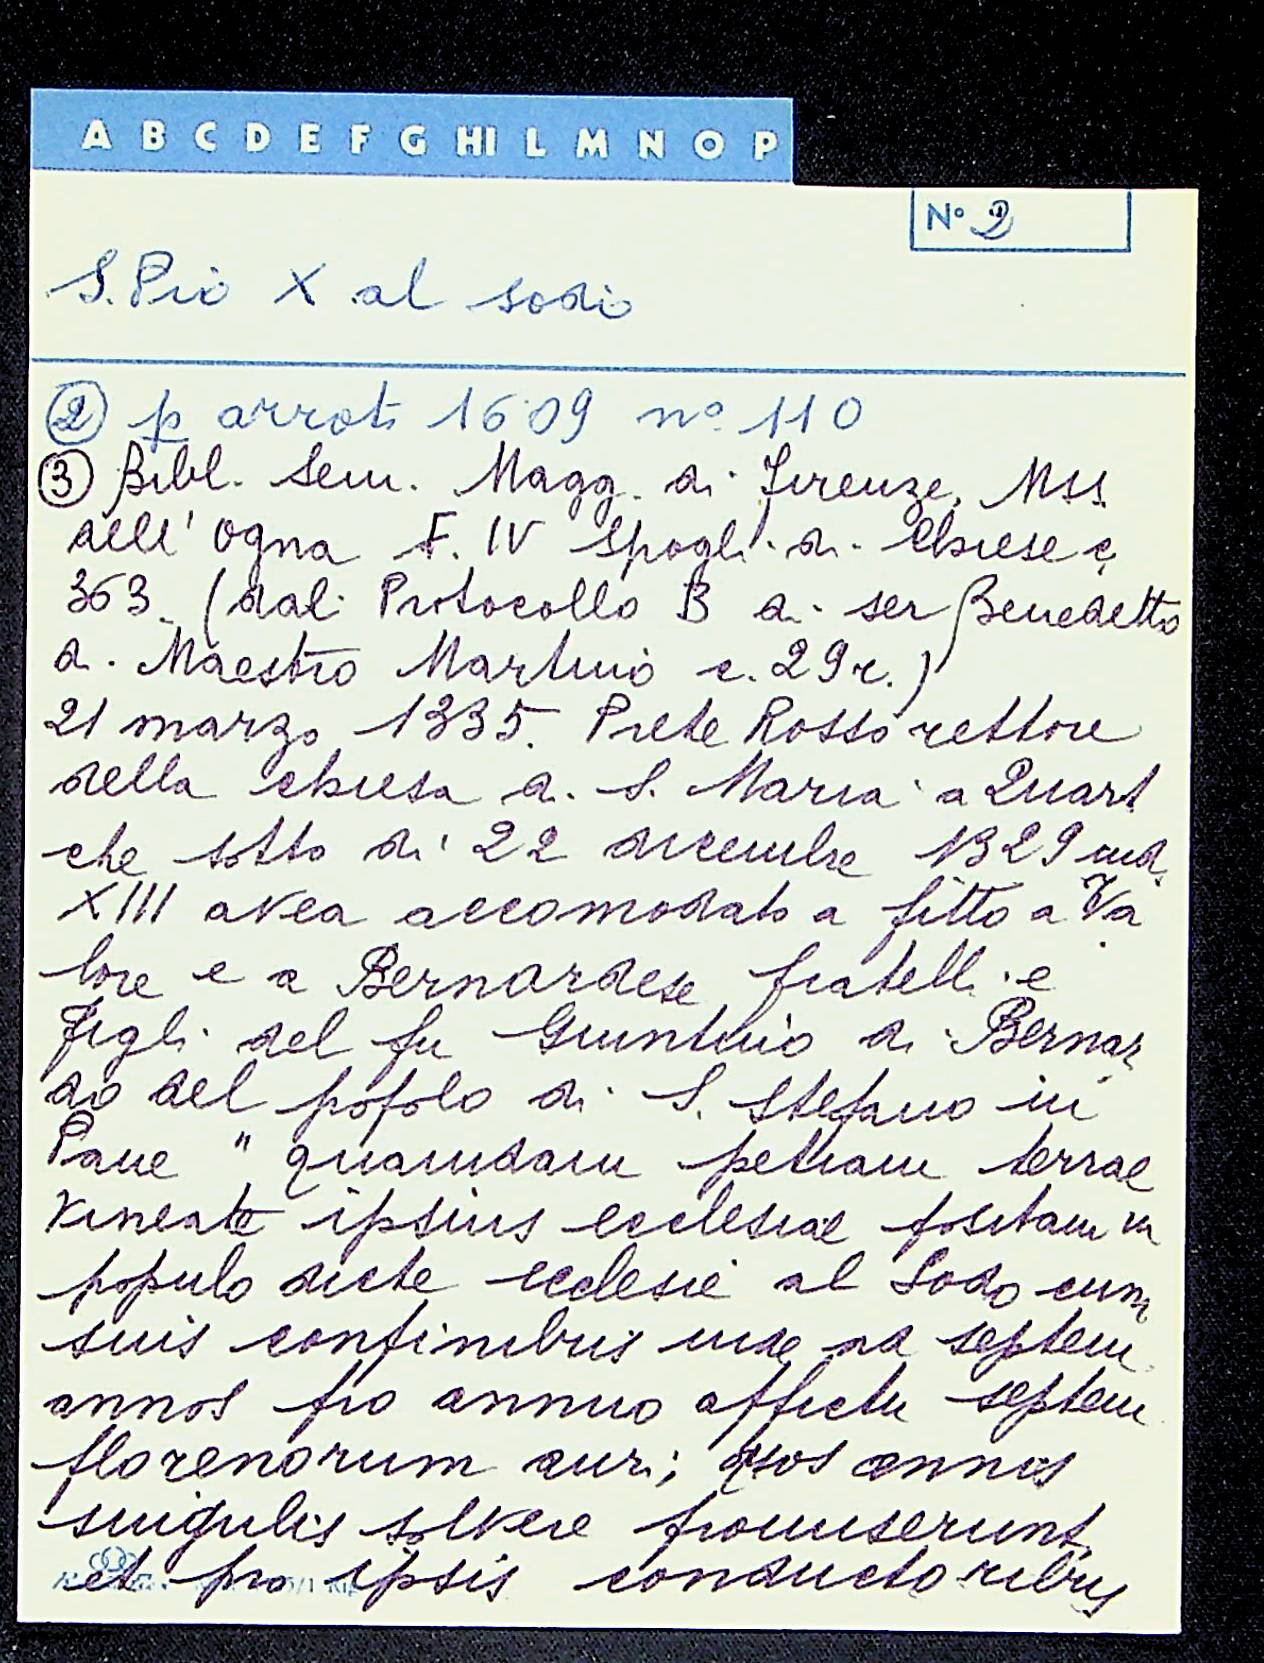 A B C D E F G HI L M N O P
N° 2
S. Pio X al sodo
② p arroti 1609 n° 110
③ Bibl. Sem. Magg. di Firenze, Mss
dell'Ogna F. IV Spogli di Chiese c
363. (dal Protocollo B di ser Benedetto
di Maestro Martino c. 29 r.)
21 marzo 1335. Prete Rosso rettore
della chiesa di S. Maria a Quart
che sotto dì 22 dicembre 1329 ind.
XIII avea accomodato a fitto a Va
lore e a Bernardese fratelli e
figli del fu Giuntino di Bernar
do del popolo di S. Stefano in
Pane "quamdam petiam terrae
vineate ipsius ecclesiae positam in
populo dicte ecclesie al Sodo cum
suis confinibus inde ad septem
annos pro annuo affictu septem
florenorum auri; quos annis
singulis solvere promiserunt,
et pro ipsis conductoribus